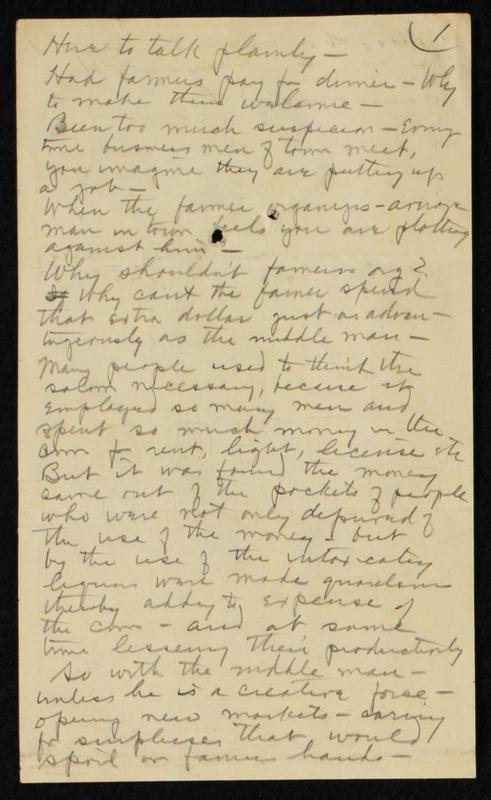 1
Here to talk plainly —
Had farmers pay for dinner — Why
to make them welcome —
Been too much suspicion — Every
time business men of town meet,
you imagine they are putting up
a job —
When the farmer organizes — average
man in town feels you are plotting
against him —
Why shouldn't farmers org?
Why can't the farmer spend
that extra dollar just as advan-
tageously as the middle man —
Many people used to think the
saloon necessary, because it
employed so many men and
spent so much money in the
com for rent, light, license etc
But it was found the money
came out of the pockets of people
who were not only deprived of
the use of the money — but
by the use of the intoxicating
liquors were made quarelsom
thereby adding to expense of
the com — and at same
time lessening their productivity
So with the middle man —
unless he is a creative force —
opening new markets — caring
for surpluses that would
spoil on farmers hands —